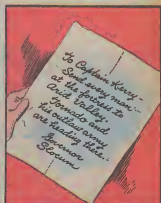 To Captain Kerry—
Send every man
at the fortress to
Arid Valley.
Tornado and
his outlaw army
are heading there..
Governor
Slocum